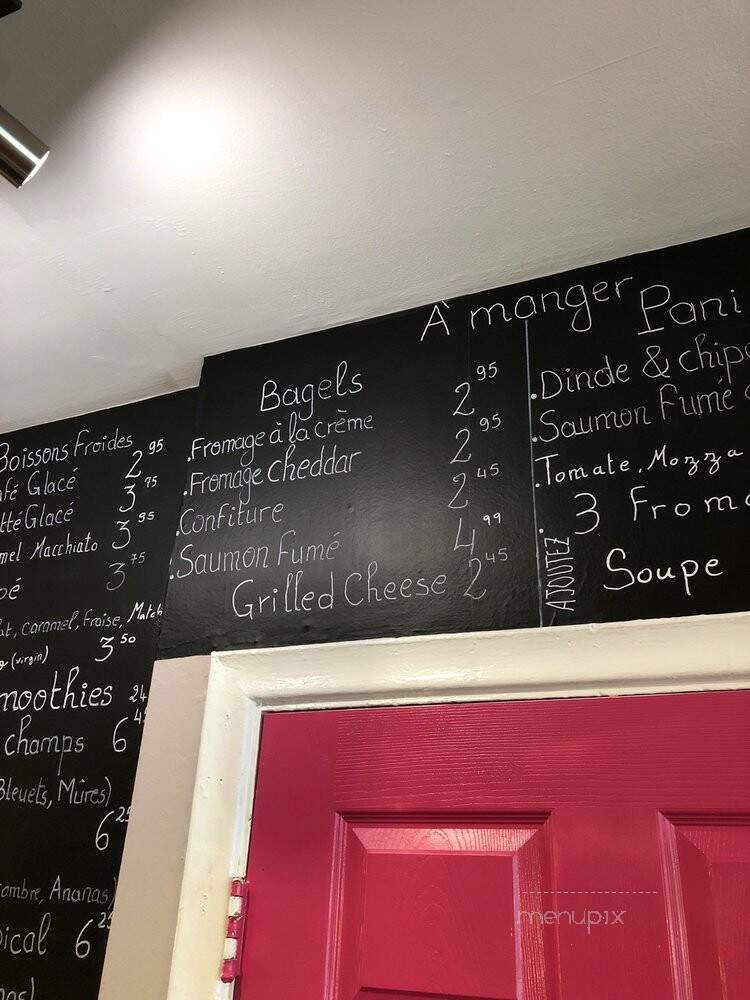 À manger
Bagels
.Fromage à la crème 2 95
.Fromage cheddar 2 95
.Confiture 2 45
.Saumon Fumé 4 99
Grilled Cheese 2 45
Pani
.Dinde & chip
.Saumon Fumé
.Tomate, Mozza
3 Froma
AJOUTEZ:
Soupe
Boissons Froides
afé Glacé 2 95
tté Glacé 3 75
mel Macchiato 3 95
pé 3 75
at, Caramel, Fraise, Match
(virgin) 3 50
moothies 24
champs 6 4
Bleuets, Mûres)
6 25
ombre, Ananas)
pical 6 25
menupix